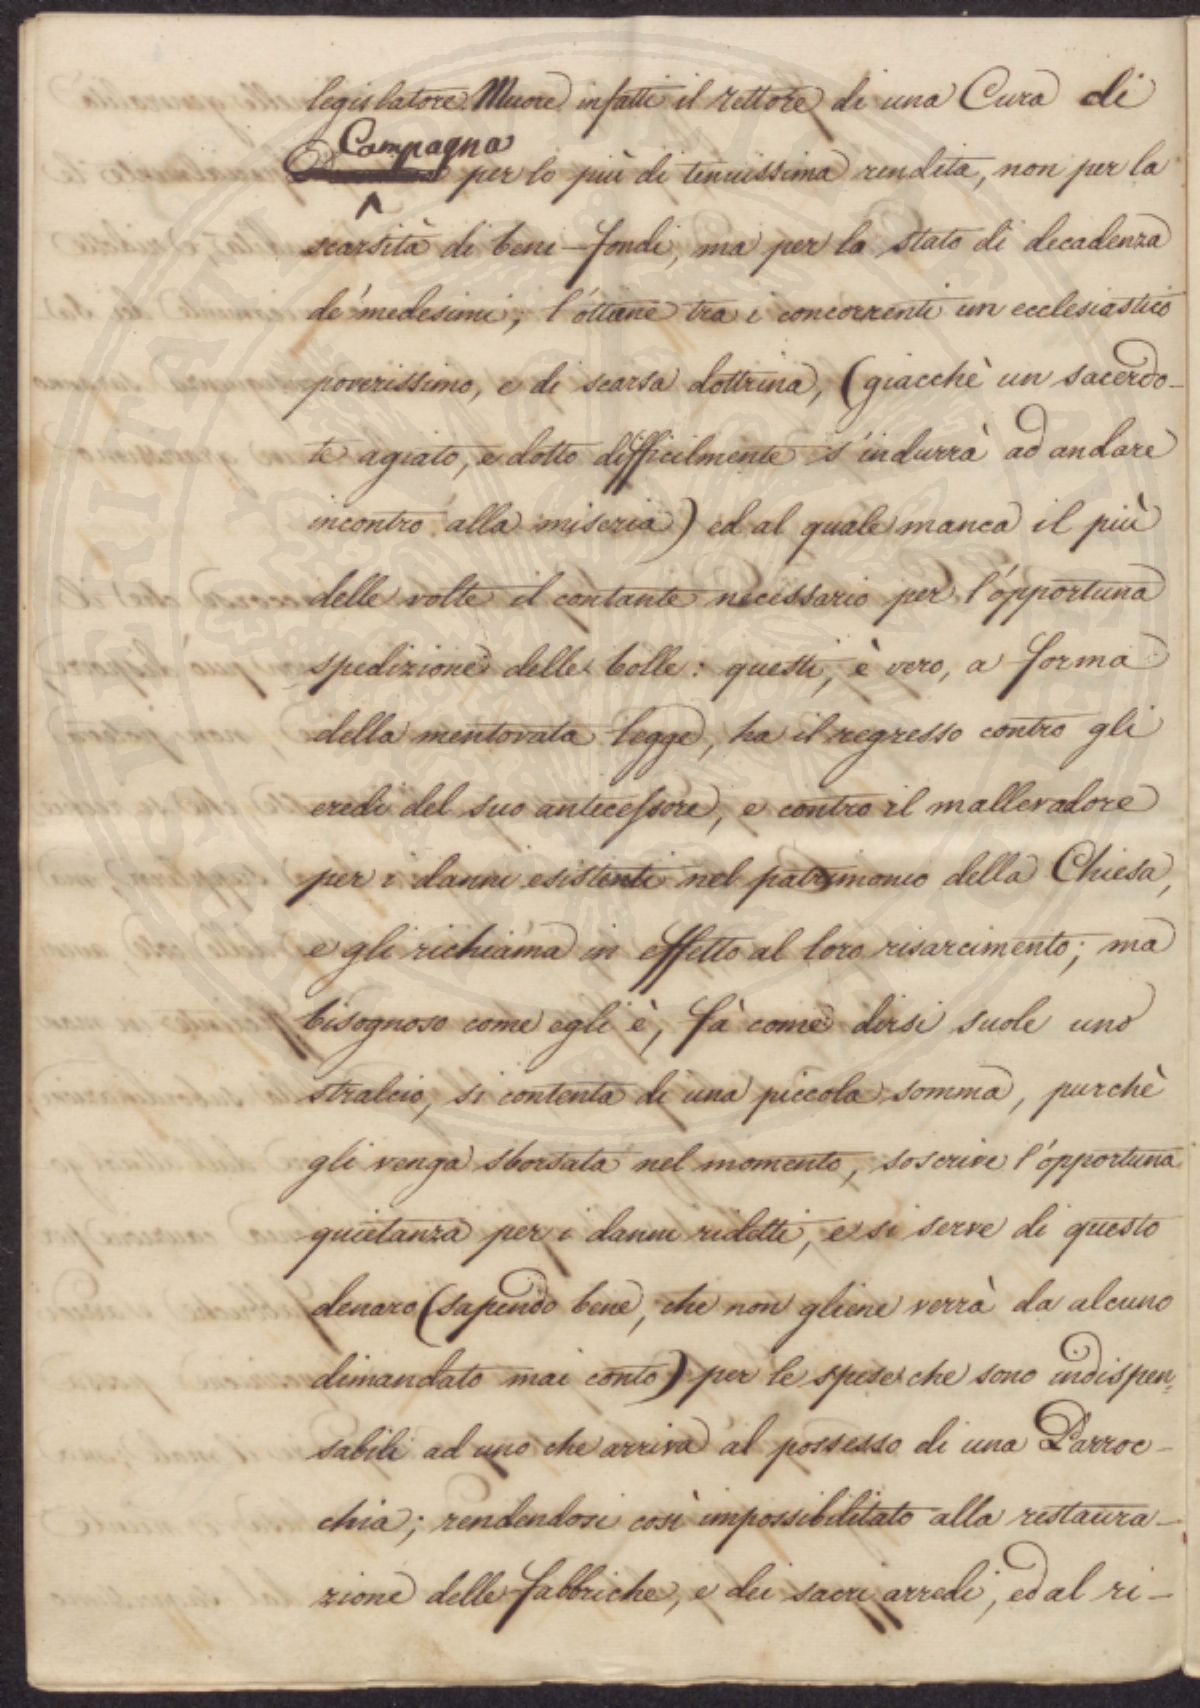 legislatore. Muore infatti il rettore di una Cura di
Campagna
per lo più di tenuissima rendita, non per la
scarsità di beni-fondi, ma per lo stato di decadenza
de' medesimi; l'ottiene tra i concorrenti un ecclesiastico
poverissimo, e di scarsa dottrina, (giacchè un sacerdo-
te agiato, e dotto difficilmente s'indurrà ad andare
incontro alla miseria) ed al quale manca il più
delle volte il contante necessario per l'opportuna
spedizione delle bolle: questi, è vero, a forma
della mentovata legge, ha il regresso contro gli
eredi del suo antecessore, e contro il mallevadore
per i danni esistenti nel patrimonio della Chiesa,
e gli richiama in effetto al loro risarcimento; ma
bisognoso come egli è, fà come dirsi suole uno
stralcio, si contenta di una piccola somma, purchè
gli venga sborsata nel momento, soscrive l'opportuna
quietanza per i danni ridetti, e si serve di questo
denaro (sapendo bene, che non gliene verrà da alcuno
dimandato mai conto) per le spese che sono indispen-
sabili ad uno che arriva al possesso di una Parroc-
chia; rendendosi così impossibilitato alla restaura-
zione delle fabbriche, e dei sacri arredi, ed al ri-